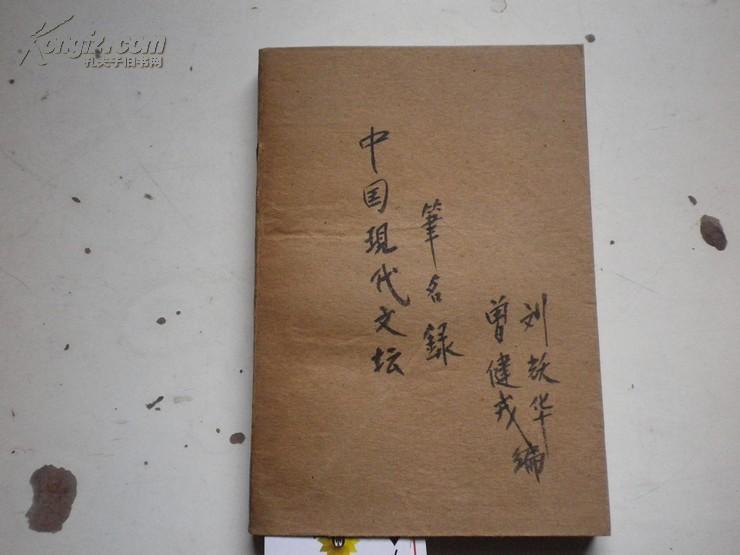 Kongfz.com
孔夫子旧书网
中国現代文坛
筆名録
曾健戎
刘耀华
编